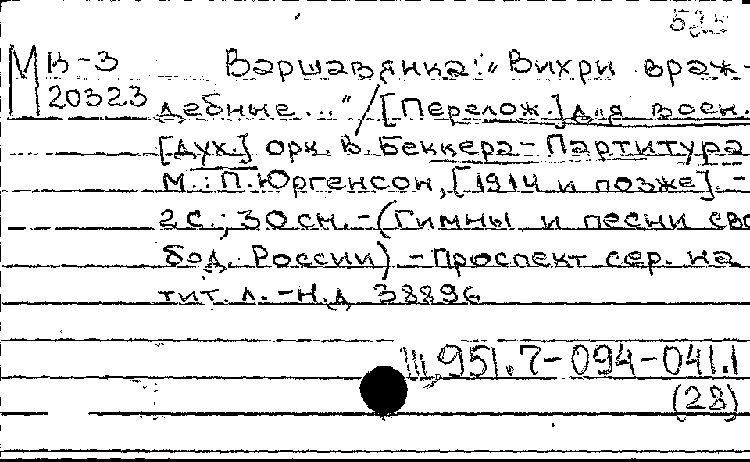 М В-3 Варшавянка: "Вихри враж-
20323 дебные..." / [Перелож.] для воен.
[дух.] орк. В. Беккера - Партитура
М.: П. Юргенсон, [1914 и позже]. -
2 с.; 30 см. - (Гимны и песни сво
бод. России) - Проспект сер. на
тит. л. - Н.д 38896
Ш 951.7-094-041.1
(28)